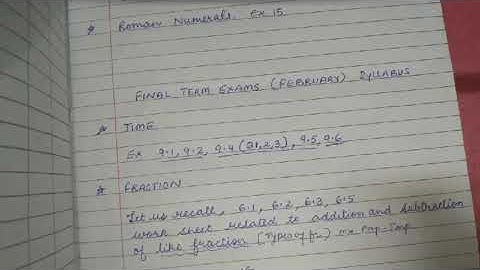 * Roman Numerals. Ex 15.
FINAL TERM EXAMS (FEBRUARY) SYLLABUS
* TIME
Ex 9.1, 9.2, 9.4 (Q1,2,3), 9.5, 9.6
* FRACTION
Let us recall, 6.1, 6.2, 6.3, 6.5
work sheet related to addition and subtraction
of like fraction (Types of fra)